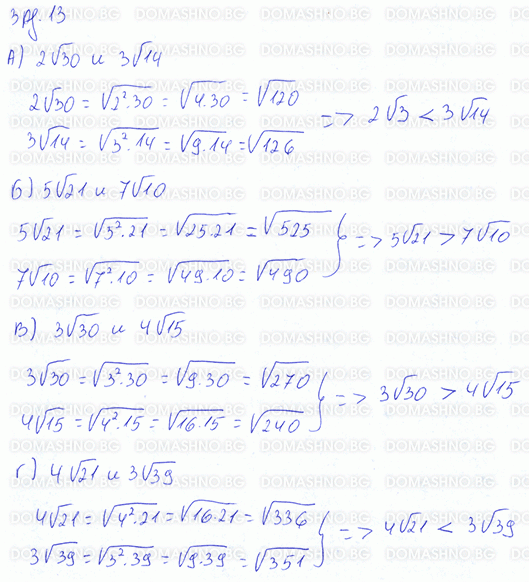 Зад. 13
А) 2√30 и 3√14
2√30 = √2².30 = √4.30 = √120
3√14 = √3².14 = √9.14 = √126
=> 2√3 < 3√14
б) 5√21 и 7√10
5√21 = √3².21 = √25.21 = √525
7√10 = √7².10 = √49.10 = √490
} => 5√21 > 7√10
В) 3√30 и 4√15
3√30 = √3².30 = √9.30 = √270
4√15 = √4².15 = √16.15 = √240
} => 3√30 > 4√15
г) 4√21 и 3√39
4√21 = √4².21 = √16.21 = √336
3√39 = √3².39 = √9.39 = √351
} => 4√21 < 3√39
DOMASHNO.BG